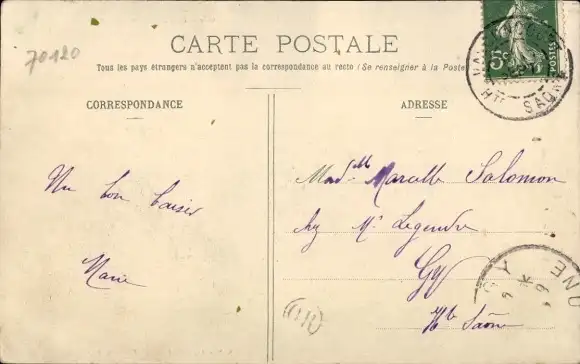 70120
CARTE POSTALE
Tous les pays étrangers n'acceptent pas la correspondance au recto (Se renseigner à la Poste
CORRESPONDANCE
ADRESSE
5c
POSTES
Hte SAÔNE
Un bon baiser
Marie
Madelle Marcelle Salomon
chez Mr Legendre
Gy
Hte Saône
GY